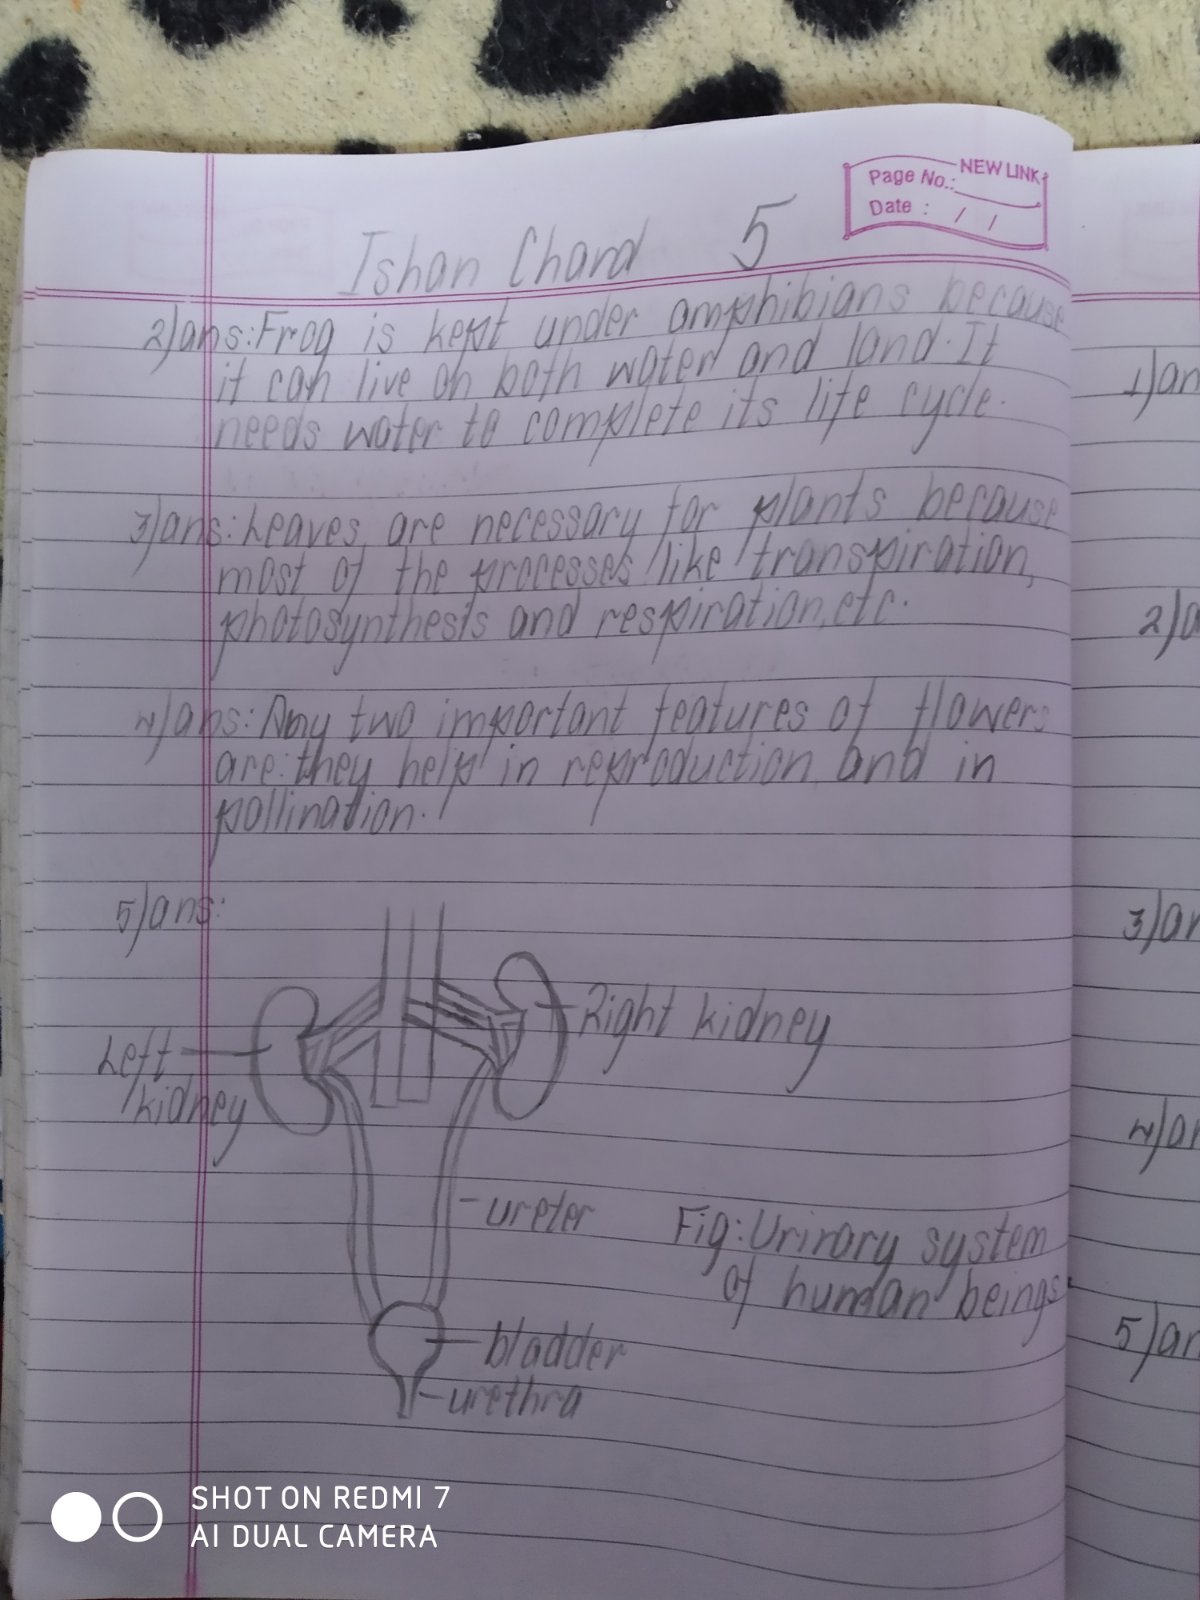 NEW LINK
Page No.:
Date : / /
Ishan Chand 5
2)ans:Frog is kept under amphibians because
it can live on both water and land. It
needs water to complete its life cycle.
3)ans:Leaves are necessary for plants because
most of the processes like transpiration,
photosynthesis and respiration,etc.
4)ans: Any two important features of flowers
are: they help in reproduction and in
pollination.
5)ans:
Right kidney
Left
kidney
ureter
Fig: Urinary system
of human beings.
bladder
urethra
1)an
2)a
3)an
4)an
5)an
SHOT ON REDMI 7
AI DUAL CAMERA